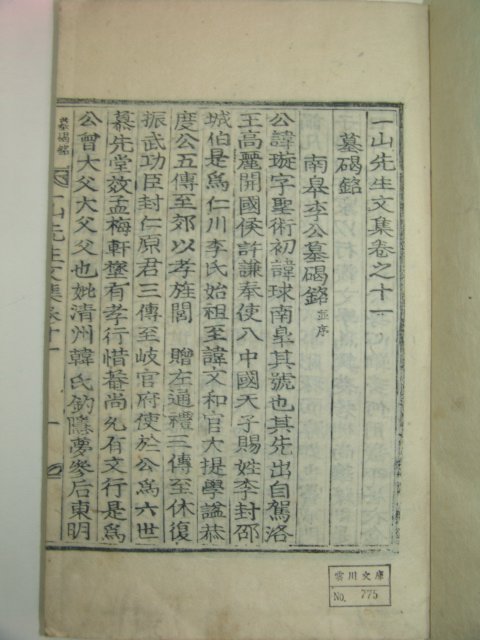 一山先生文集卷之十一
墓碣銘
南皋李公墓碣銘 並序
公諱璇字聖術初諱球南皐其號也其先出自駕洛
王高麗開國侯許謙奉使入中國天子賜姓李封邵
城伯是爲仁川李氏始祖至諱文和官大提學諡恭
度公五傳至郊以孝旌閭 贈左通禮三傳至休復
振武功臣封仁原君三傳至岐官府使於公爲六世
慕先堂效孟梅軒 有孝行惜 尚允有文行是爲
公曾大父大父父也妣清州韓氏釣隱夢參后東明
墓碣銘
一山先生文集卷十一
一
雲川文庫
No. 775